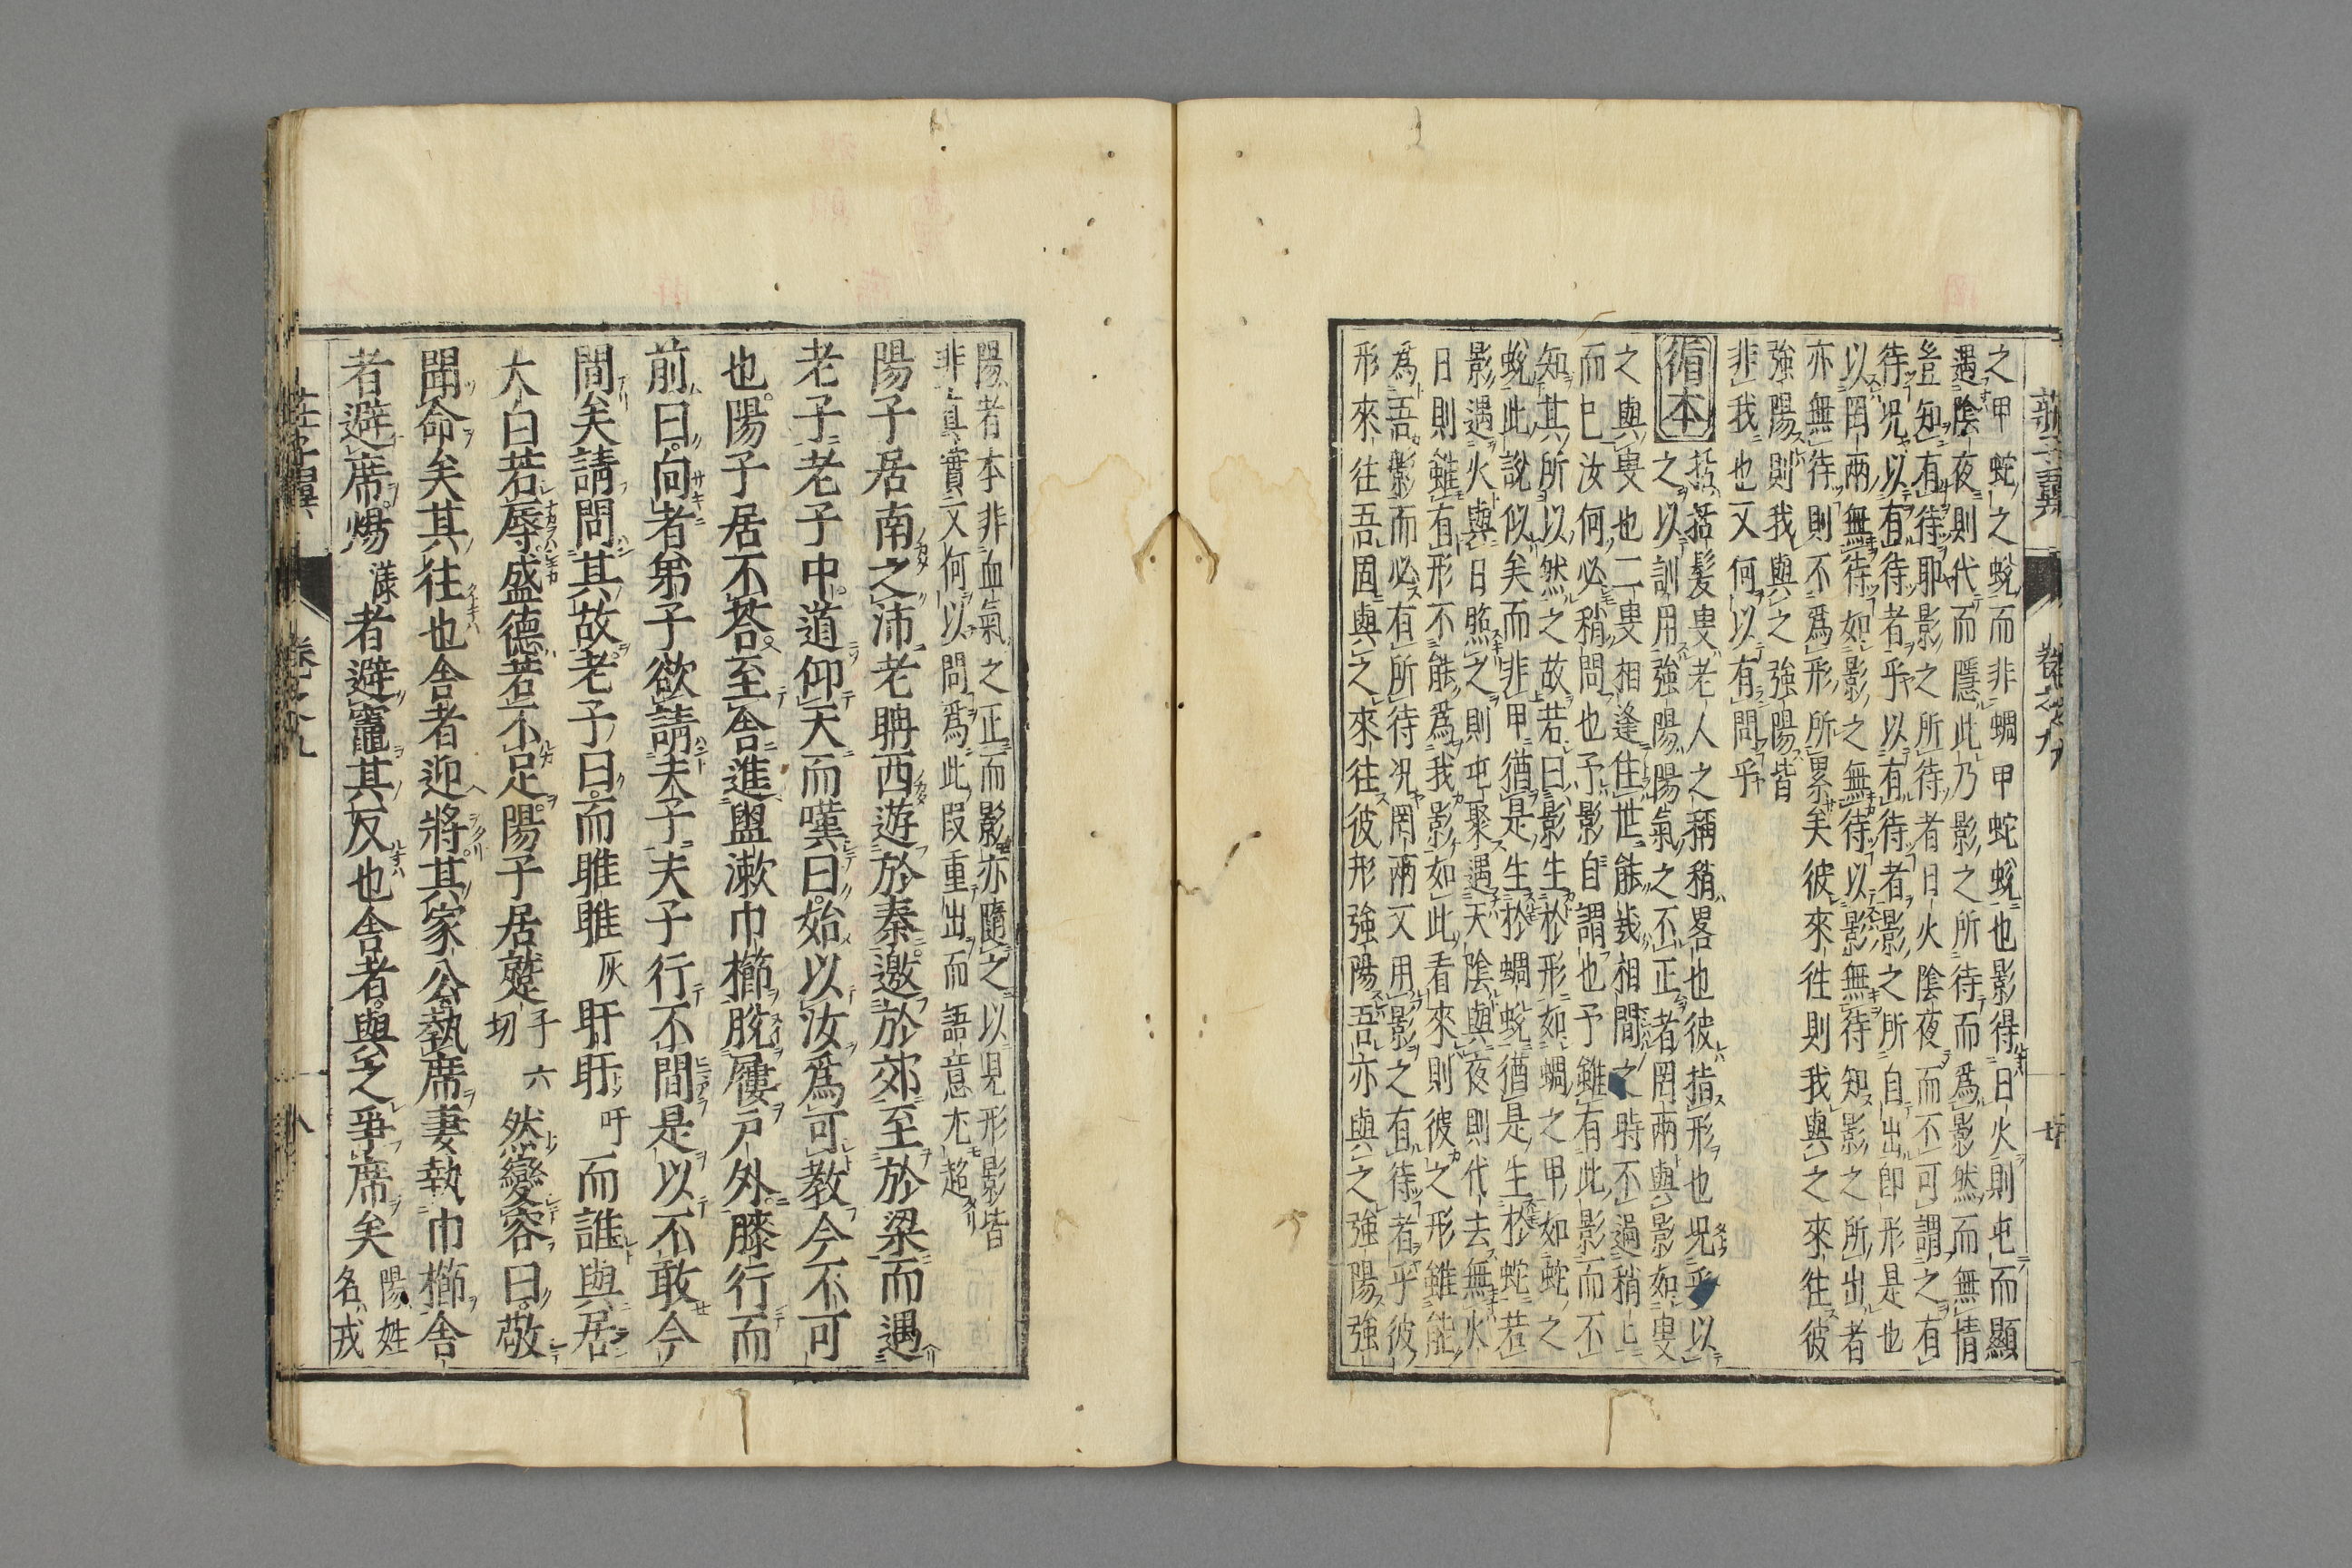 莊子翼 卷之九
之甲蛇之蛻而非蜩甲蛇蛻也影得日火則屯而顯
遇陰夜則代而隱此乃影之所待而為影然而無情
豈知有待耶影之所待者日火陰夜而不可謂之有
待况以有待者乎以有待者影之所自出即形是也
以罔兩無待如影之無待以影無待知影之所出者
亦無待則不為形所累矣彼來往則我與之來往彼
強陽則我與之強陽皆
非我也又何以有問乎
循本 括括髮叟老人之稱稍畧也彼指形也况乎以
之以訓用強陽陽氣之不正者罔兩與影如叟
之與叟也二叟相逢住世能幾相間之時不過稍上
而已汝何必稍問也予影自謂也予雖有此影而不
知其所以然之故若曰影生於形如蜩之甲如蛇之
蛻此說似矣而非甲猶是生於蜩蛻猶是生於蛇若
影遇火與日照之則屯聚遇天陰與夜則代去無火
日則雖有形不能為我影如此看來則彼之形雖能
為吾影而必有所待况罔兩又用影之有待者乎彼
形來往吾固與之來往彼形強陽吾亦與之強陽強
陽者本非血氣之正而影亦隨之以見形影皆
非真實又何以問為此段重出而語意尤超
陽子居南之沛老聃西遊於秦邀於郊至於梁而遇
老子老子中道仰天而嘆曰始以汝為可教今不可
也陽子居不荅至舍進盥漱巾櫛脫屨戶外膝行而
前曰向者弟子欲請夫子夫子行不間是以不敢今
間矣請問其故老子曰而睢睢灰盱盱吁而誰與居
大白若辱盛德若不足陽子居蹵子六切然變容曰敬
聞命矣其往也舍者迎將其家公執席妻執巾櫛舍
者避席煬漾者避竈其反也舍者與之爭席矣陽姓名戎
卷之九 八